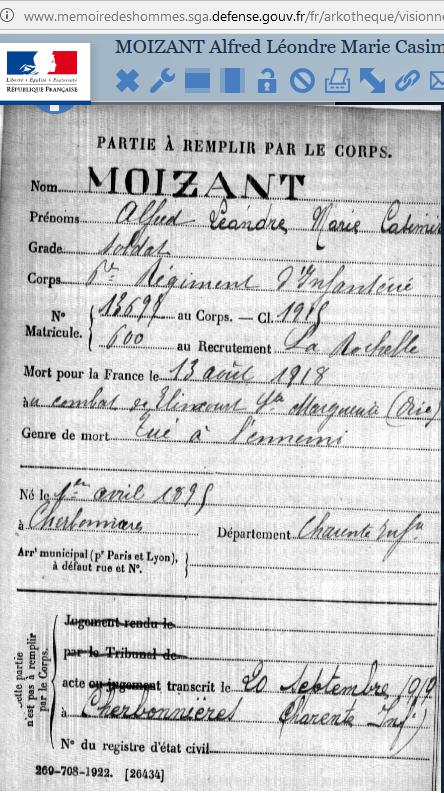 www.memoiredeshommes.sga.defense.gouv.fr/fr/arkotheque/visionn
MOIZANT Alfred Léondre Marie Casim
Liberté • Égalité • Fraternité
RÉPUBLIQUE FRANÇAISE
PARTIE À REMPLIR PAR LE CORPS.
Nom MOIZANT
Prénoms Alfred Léandre Marie Casimir
Grade soldat
Corps Régiment d'Infanterie
N° Matricule. 13697 au Corps. — Cl. 1915
600 au Recrutement La Rochelle
Mort pour la France le 13 août 1918
au combat de Elincourt Ste Marguerite (Oise)
Genre de mort Tué à l'ennemi
Né le 1er avril 1895
à Cherbonnières Département Charente Infre
Arrt municipal (pr Paris et Lyon),
à défaut rue et N°.
cette partie n'est pas à remplir par le Corps.
Jugement rendu le
par le Tribunal de
acte ou jugement transcrit le 20 septembre 1919
à Cherbonnières Charente Infre)
N° du registre d'état civil
269-708-1922. [26434]